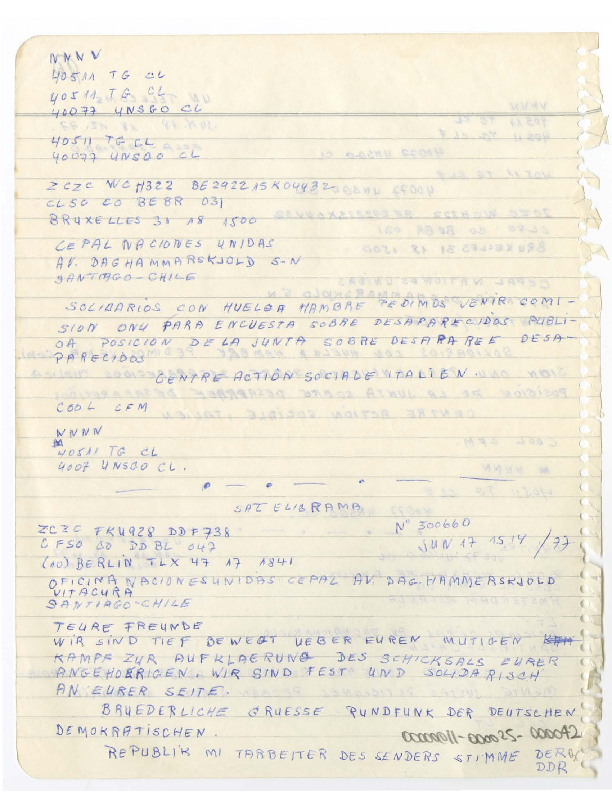 NNNV
40511 TG CL
40511 TG CL
40077 UNSGO CL
40511 TG CL
40077 UNSGO CL
ZCZC WCH322 BE2922 15K04432
CLSO CO BEBR 031
BRUXELLES 31 18 1500
CEPAL NACIONES UNIDAS
AV. DAGHAMMARSKJOLD S-N
SANTIAGO-CHILE
SOLIDARIOS CON HUELGA HAMBRE PEDIMOS VENIR COMI-
SION ONU PARA ENCUESTA SOBRE DESAPARECIDOS PUBLI-
QA POSICION DE LA JUNTA SOBRE DESAPAREE DESA-
PARECIDOS
CENTRE ACTION SOCIALE ITALIEN.
COOL CFM
NNNN
40511 TG CL
4007 UNSGO CL.
SATELIGRAMA
ZCZC FKU928 DDF738
Nº 300660
CFSO CO DDBL 047
JUN 17 1514 /77
(10) BERLIN TLX 47 17 1841
OFICINA NACIONESUNIDAS CEPAL AV. DAG. HAMMERSKJOLD
VITACURA
SANTIAGO-CHILE
TEURE FREUNDE
WIR SIND TIEF BEWEGT UEBER EUREN MUTIGEN
KAMPF ZUR AUFKLAERUNG DES SCHICKSALS EURER
ANGEHOERIGEN. WIR SIND FEST UND SOLIDARISCH
AN EURER SEITE.
BRUEDERLICHE GRUESSE RUNDFUNK DER DEUTSCHEN
DEMOKRATISCHEN.
0000011-000025-000042
REPUBLIK MITARBEITER DES SENDERS STIMME DER
DDR